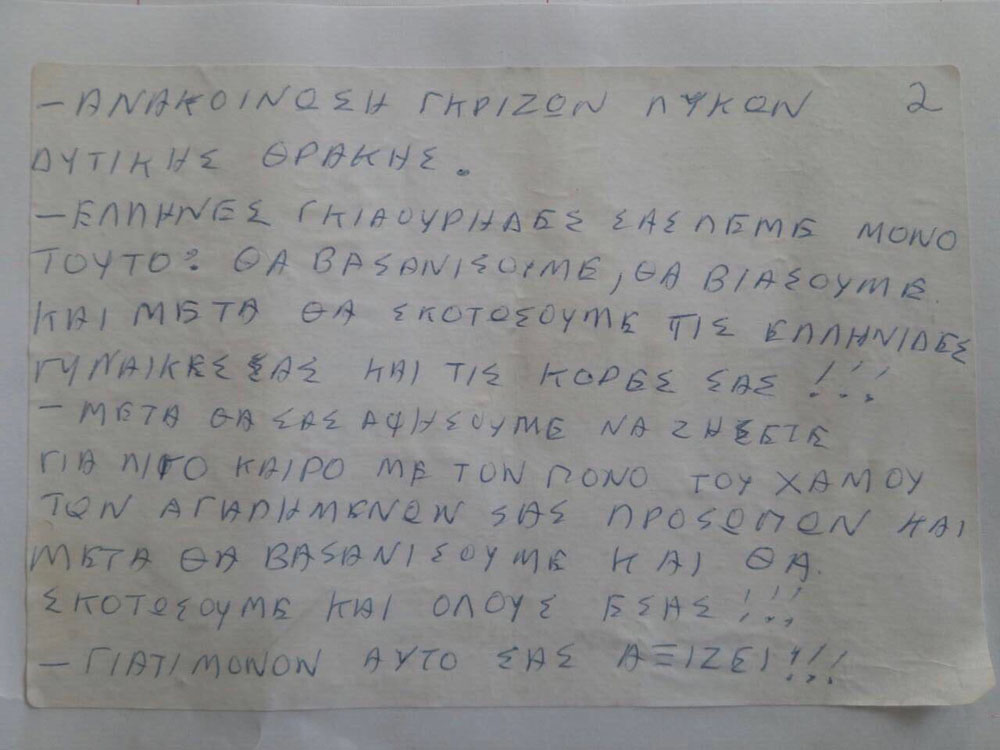 – ΑΝΑΚΟΙΝΩΣΗ ΓΚΡΙΖΩΝ ΛΥΚΩΝ 2
ΔΥΤΙΚΗΣ ΘΡΑΚΗΣ.
– ΕΛΛΗΝΕΣ ΓΚΙΑΟΥΡΗΔΕΣ ΣΑΣ ΛΕΜΕ ΜΟΝΟ
ΤΟΥΤΟ: ΘΑ ΒΑΣΑΝΙΣΟΥΜΕ, ΘΑ ΒΙΑΣΟΥΜΕ
ΚΑΙ ΜΕΤΑ ΘΑ ΣΚΟΤΟΣΟΥΜΕ ΤΙΣ ΕΛΛΗΝΙΔΕΣ
ΓΥΝΑΙΚΕΣ ΣΑΣ ΚΑΙ ΤΙΣ ΚΟΡΕΣ ΣΑΣ !!!
– ΜΕΤΑ ΘΑ ΣΑΣ ΑΦΗΣΟΥΜΕ ΝΑ ΖΗΣΕΤΕ
ΓΙΑ ΛΙΓΟ ΚΑΙΡΟ ΜΕ ΤΟΝ ΠΟΝΟ ΤΟΥ ΧΑΜΟΥ
ΤΩΝ ΑΓΑΠΗΜΕΝΩΝ ΣΑΣ ΠΡΟΣΩΠΩΝ ΚΑΙ
ΜΕΤΑ ΘΑ ΒΑΣΑΝΙΣΟΥΜΕ ΚΑΙ ΘΑ
ΣΚΟΤΩΣΟΥΜΕ ΚΑΙ ΟΛΟΥΣ ΕΣΑΣ !!!
– ΓΙΑΤΙ ΜΟΝΟΝ ΑΥΤΟ ΣΑΣ ΑΞΙΖΕΙ !!!